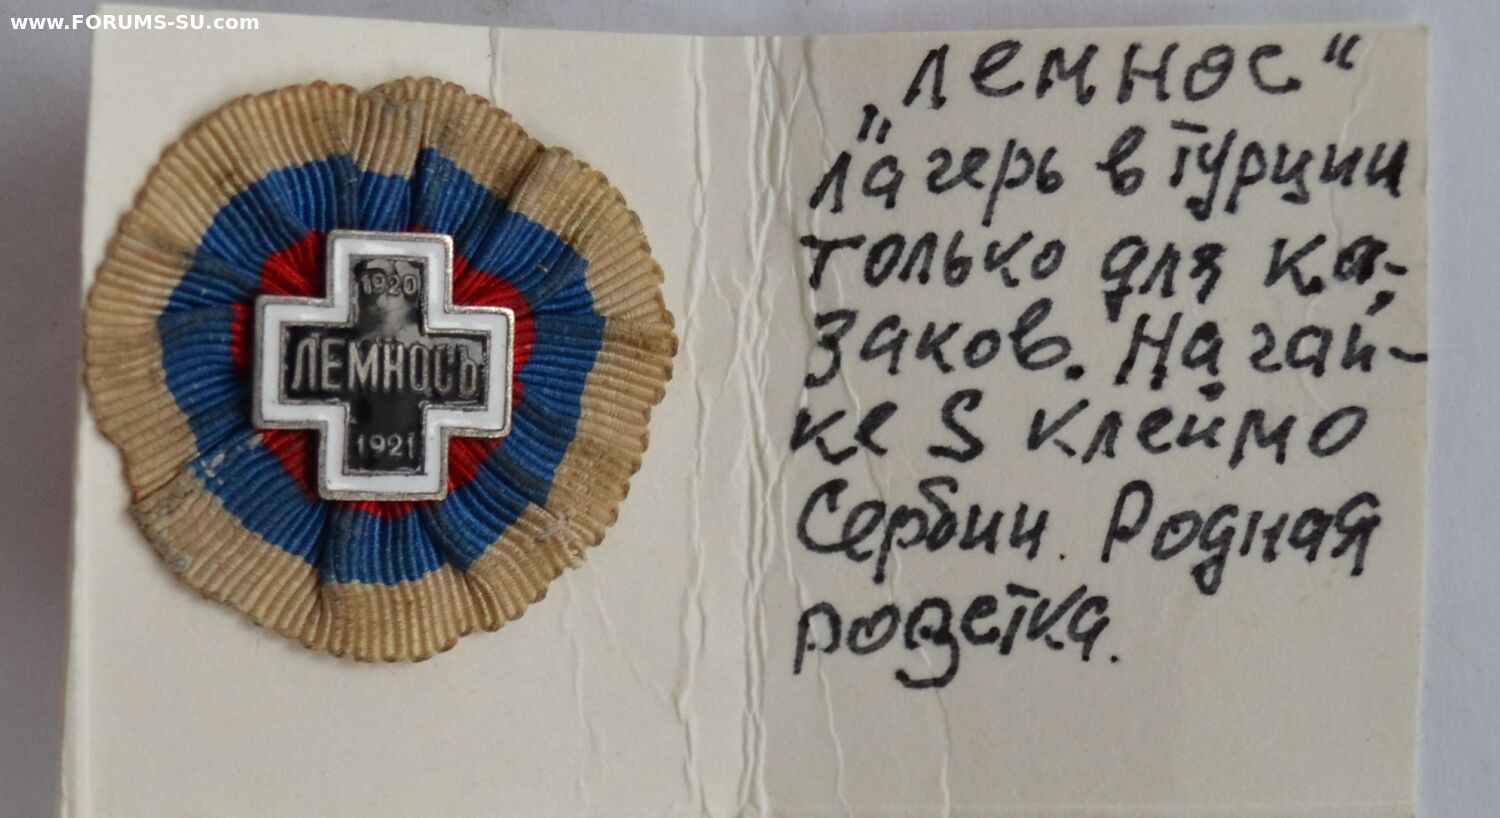 www.FORUMS-SU.com
1920
ЛЕМНОСЪ
1921
„Лемнос“
„Лагерь в Турции
только для ка-
заков. На гай-
ке S клеймо
Сербии. Родная
розетка.